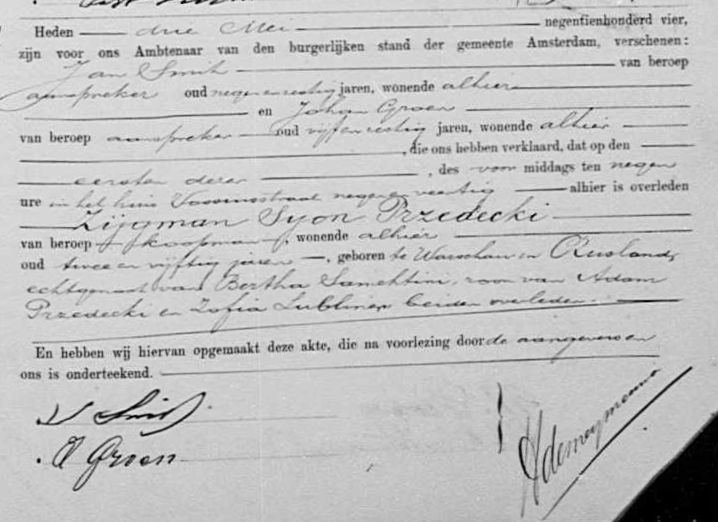 Heden drie Mei negentienhonderd vier,
zijn voor ons Ambtenaar van den burgerlijken stand der gemeente Amsterdam, verschenen:
Jan Smit van beroep
aanspreker oud negen en zestig jaren, wonende alhier
en Johan Groen
van beroep aanspreker oud vijf en zestig jaren, wonende alhier
, die ons hebben verklaard, dat op den
eersten dezer , des voor middags ten negen
ure in het huis Vossiusstraat negen en veertig alhier is overleden
Zijgman Syon Przedecki
van beroep koopman, wonende alhier
oud twee en vijftig jaren, geboren te Warschau in Rusland,
echtgenoot van Bertha , zoon van Adam
Przedecki en Zofia Lubliner beiden overleden.
En hebben wij hiervan opgemaakt deze akte, die na voorlezing door de aangevers en
ons is onderteekend.
J Smit
J Groen